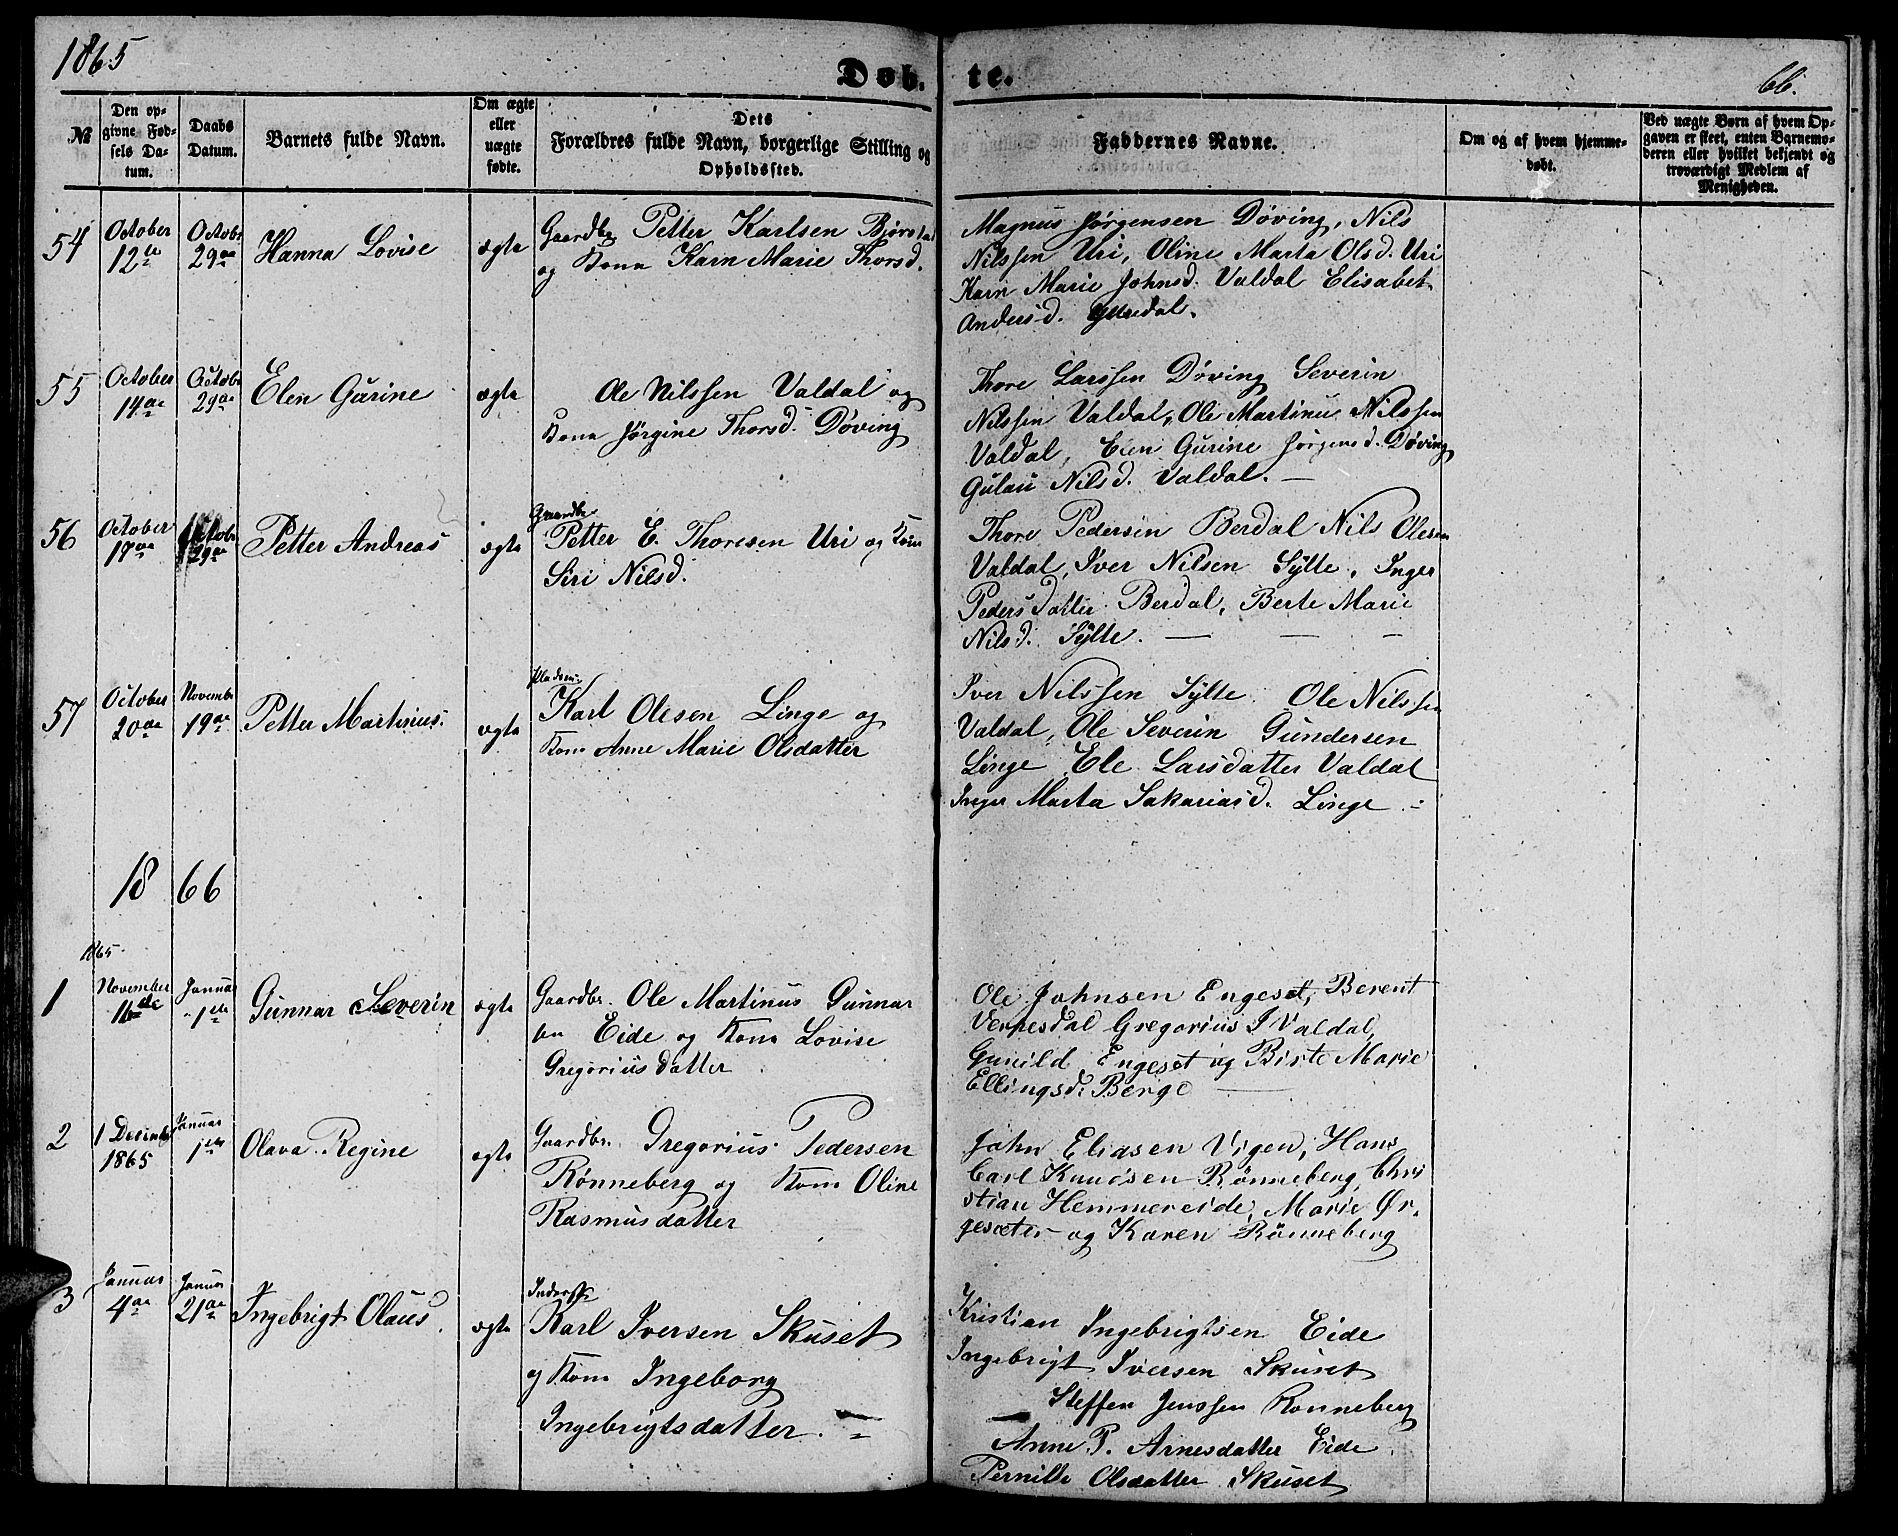 1865
Døb-te.
66.
№
Den op-
givne Fød-
sels Da-
tum.
Daabs
Datum.
Barnets fulde Navn.
Om ægte
eller
uægte
fødte.
Dets
Forældres fulde Navn, borgerlige Stilling og
Opholdssted.
Faddernes Navne.
Om og af hvem hjemme-
døbt.
Ved uægte Børn af hvem Op-
gaven er skeet, enten Barnemo-
deren eller hvilket bekjendt og
troværdigt Medlem af
Menigheden.
54
October
12te
Octobr
29de
Hanna Lovise
ægte
Gaardbr. Petter Karlsen Bjørstad
og Kona Karn Marie Thorsd.
Magnus Jørgensen Døving, Nils
Nilssen Uri, Oline Marta Olsd. Uri
Karn Marie Johnsd. Valdal Elisabet
Andersd. Yttredal.
55
October
14de
Octobr
29de
Elen Gurine
ægte
Ole Nilssen Valdal og
Kona Jørgine Thorsd. Døving
Thore Larssen Døving Severin
Nilssen Valdal, Ole Martinus Nilssen
Valdal, Elen Gurine Jørgensd. Døving
Gulau Nilsd. Valdal. —
56
October
17de
Octobr
29de
Petter Andreas
ægte
Gaardbr
Petter E. Thoresen Uri og Kona
Siri Nilsd.
Thore Pedersen Berdal Nils Olesen
Valdal, Iver Nilsen Sylte, Inger
Peders Datter Berdal, Berte Marie
Nilsd. Sylte. — — —
57
October
20de
Novembr
19de
Petter Martinius.
ægte
Pladsm.
Karl Olesen Linge og
Kona Anne Marie Olsdatter
Iver Nilssen Sylte. Ole Nilssen
Valdal, Ole Severin Gundersen
Linge, Ele Larsdatter Valdal
Inger Marta Sakariasd. Linge
18 66
1865
1
November
16de
Januar
1ste
Gunnar Severin
ægte
Gaardbr. Ole Martinus Gunnar
sen Eide og Kona Lovise
Gregorius datter
Ole Johnsen Engeset, Berent
Verpesdal Gregorius I Valdal,
Guneild Engeset og Birte Marie
Ellingsd: Berge —
2
1 Decembr
1865
Januar
1ste
Olava Regine
ægte
Gaardbr. Gregorius Pedersen
Rønneberg og Kona Oline
Rasmusdatter
John Eliasen Vigen, Hans
Carl Knudsen Rønneberg, Chri
stian Hemmereide, Marie Ør-
gesæter og Karen Rønneberg
3
Januar
4de
Januar
21de
Ingebrigt Olaus.
ægte
Inderst
Karl Iversen Skuset
og Kona Ingeborg
Ingebrigtsdatter.
Kristian Ingebrigtsen Eide
Ingebrigt Iversen Skuset
Steffen Jenssen Ronneberg
Anne P. Arnesdatter Eide
Pernille Olsdatter Skuset